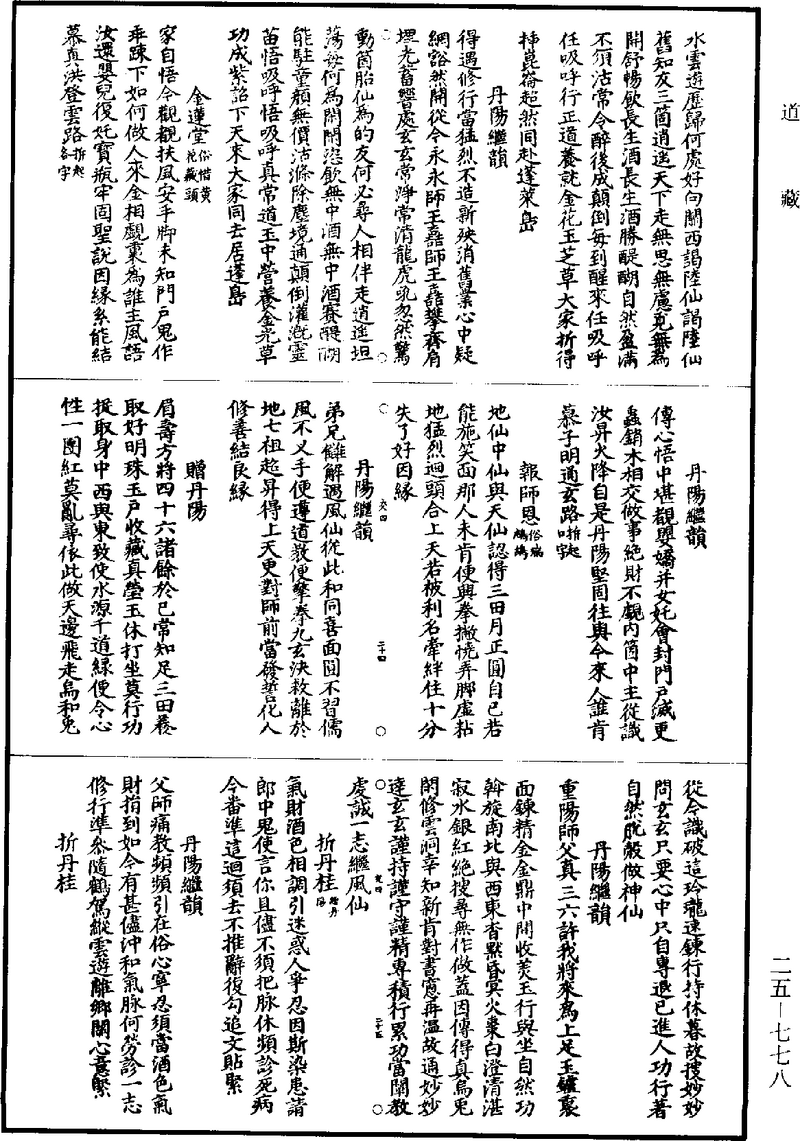 道藏
水雲遊歷歸何處好向關西謁陸仙謁陸仙
舊知友三箇逍遙天下走無思無慮覓無為
開舒暢飲長生酒長生酒勝醍醐自然盈滿
不須沽常令醉後成顛倒每到醒來任吸呼
任吸呼行正道養就金花玉芝草大家折得
挿崑崙超然同赴蓬萊島
丹陽繼韻
得遇修行當猛烈不造新殃消舊業心中疑
網豁然開從今永永師王嚞師王嚞攀齊肩
埋光蓄響處玄玄常淨常清龍虎吼忽然驚
動箇胎仙為的友何必尋人相伴走逍遙坦
蕩每何為閑閑恣飲無中酒無中酒賽醍醐
能駐童顏無價沽滌除塵境通顛倒灌漑靈
苗悟吸呼悟吸呼真常道玉中營養金光草
功成紫詔下天來大家同去居蓬島
金蓮堂俗惜黃花藏頭
家自悟今觀觀扶風安手脚未知門戶鬼作
乖踈下如何做人來金相覷棗為誰主風語
汝還嬰兒復奼寶瓶牢固聖說因緣糸能結
慕真洪登雲路拆起各字
丹陽繼韻
傳心悟中堪觀嬰嬌并女奼會封門戶滅更
蟲銷木相交做事絕財不覷內箇中主從識
汝昇火降自是丹陽堅固往與今來人誰肯
慕子明通玄路拆起口字
報師恩俗瑞鷓鴣
地仙中仙與天仙認得三田月正圓自己若
能施笑面那人未肯便與拳撇憢弄脚虛粘
地猛烈迴頭合上天若被利名牽絆住十分
失了好因緣
丹陽繼韻
弟兄儺解遇風仙從此和同喜面圓不習儒
風不乂手便遵道教便擎拳九玄決救離於
地七祖超昇得上天更對師前當發誓化人
修善結良緣
贈丹陽
眉壽方將四十六諸餘於已常知足三田養
取好明珠玉戶收藏真瑩玉休打坐莫行功
擬取身中西與東致使水源千道綠便令心
性一團紅莫亂尋依此做天邊飛走烏和兔
從今識破這玲瓏速鍊行持休暮故搜妙妙
問玄玄只要心中只自專退已進人功行著
自然脫殼做神仙
丹陽繼韻
重陽師父真三六許我將來為上足玉鑪裏
面鍊精金金鼎中閑收美玉行與坐自然功
斡旋南北與西東杳黙昏冥火棗白澄清湛
寂水銀紅絕搜尋無作做蓋因傳得真烏兔
閑修雲洞幸知新肯對書窻再溫故通妙妙
達玄玄謹持謹守謹精專積行累功當闡教
虔誠一志繼風仙
折丹桂贈丹陽
氣財酒色相調引迷惑人爭忍因斯染患請
郎中鬼使言你且儘不須把脉休頻診死病
今番準這迴須去不推辭復勾追文貼緊
丹陽繼韻
父師痛教頻頻引在俗心寧忍須當酒色氣
財捐到如今有甚儘沖和氣脉何勞診一志
修行準參隨鶴駕縱雲遊離鄉關心意緊
折丹桂
二五—七七八